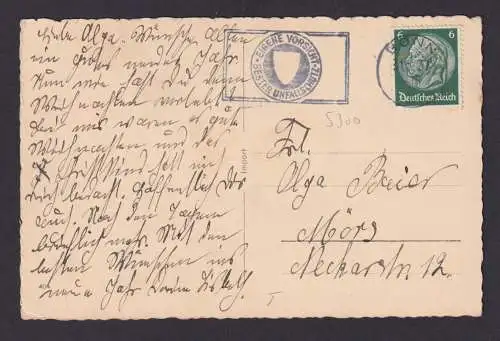 Liebe Olga. Wünsche Allen
ein gutes neues Jahr.
Nun wie hast du denn
Weihnachten verlebt
bei uns waren es gute
Weihnachten und das
Christkind hat uns
reich bedacht. Hoffentlich
auch. Nach den
mehr. Mit den
besten Wünschen ins
neue Jahr
EIGENE VORSICHT
BESTER UNFALLSCHUTZ
6 6
Deutsches Reich
5300
Import
Frl.
Olga Beier
Mörs
Neckarstr. 12.